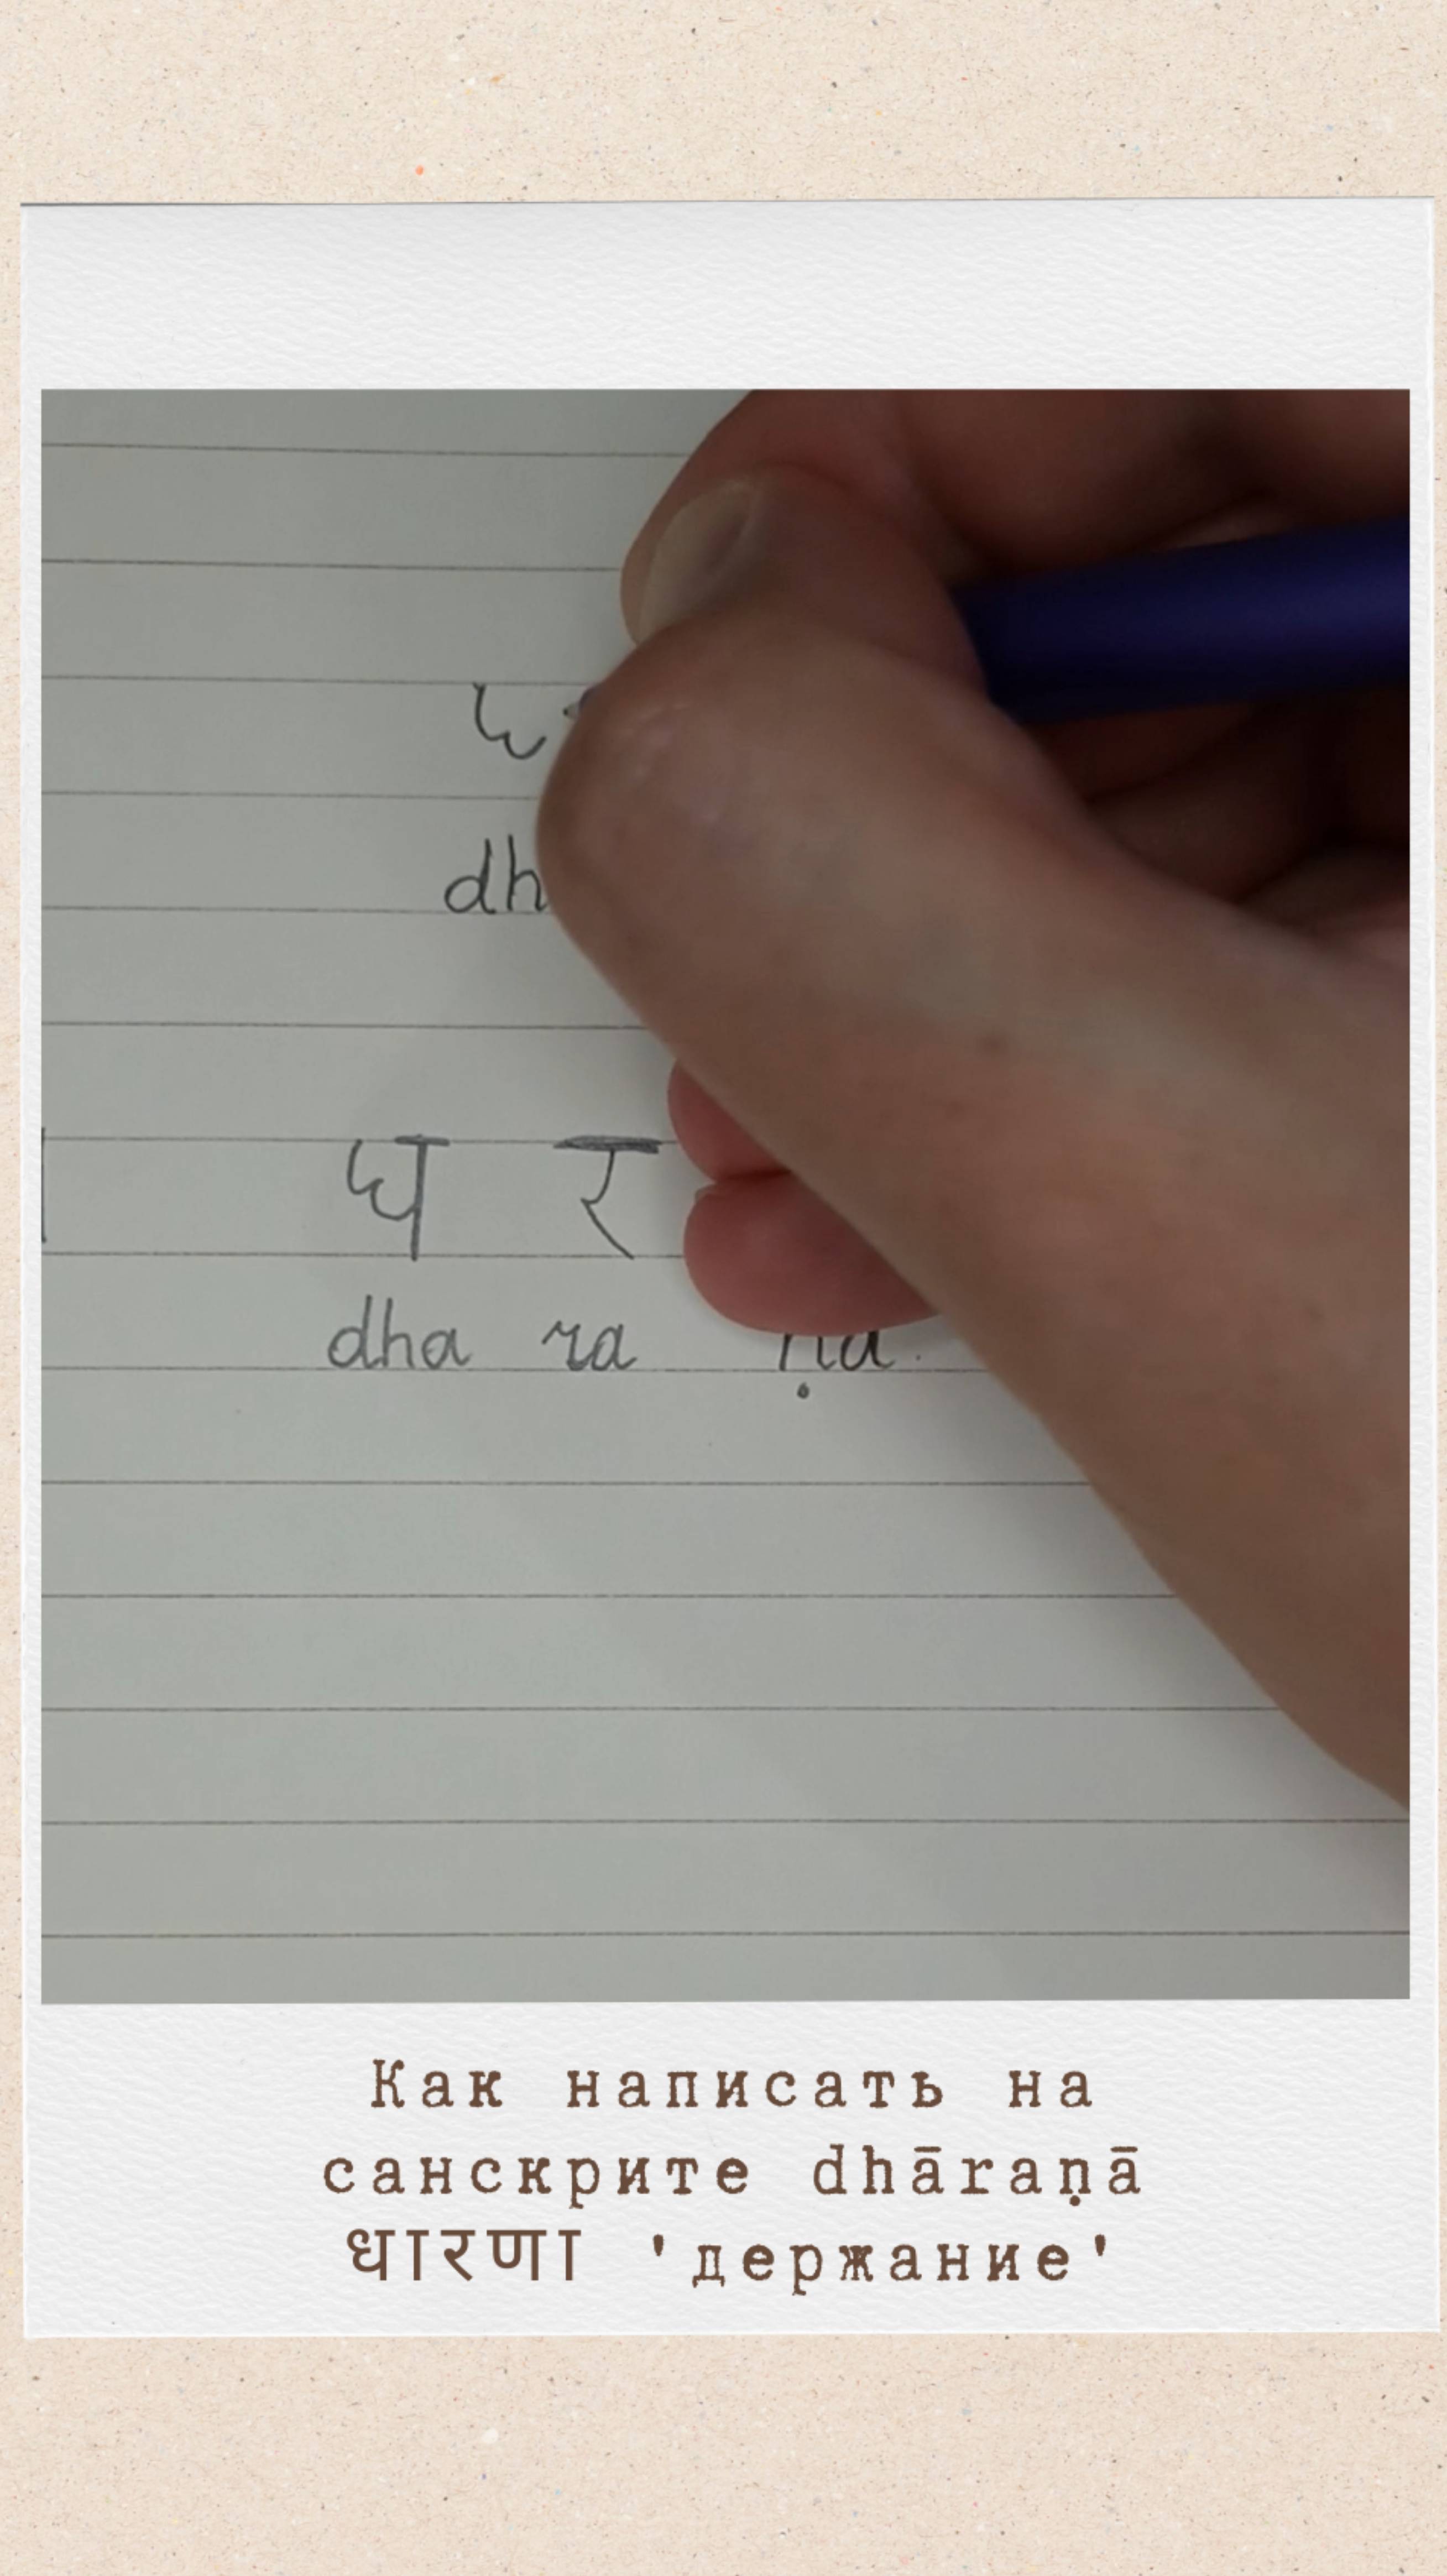 dh
ध र
dha ra ṇa
Как написать на
санскрите dhāraṇā
धारणा 'держание'